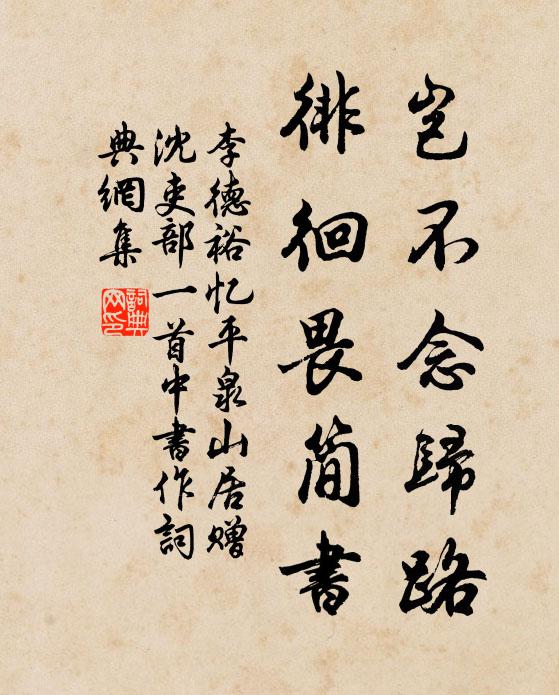 岂不念歸路
徘徊畏简書
李德裕忆平泉山居赠
沈吏部一首中書作詞
典網集
詞典
网印